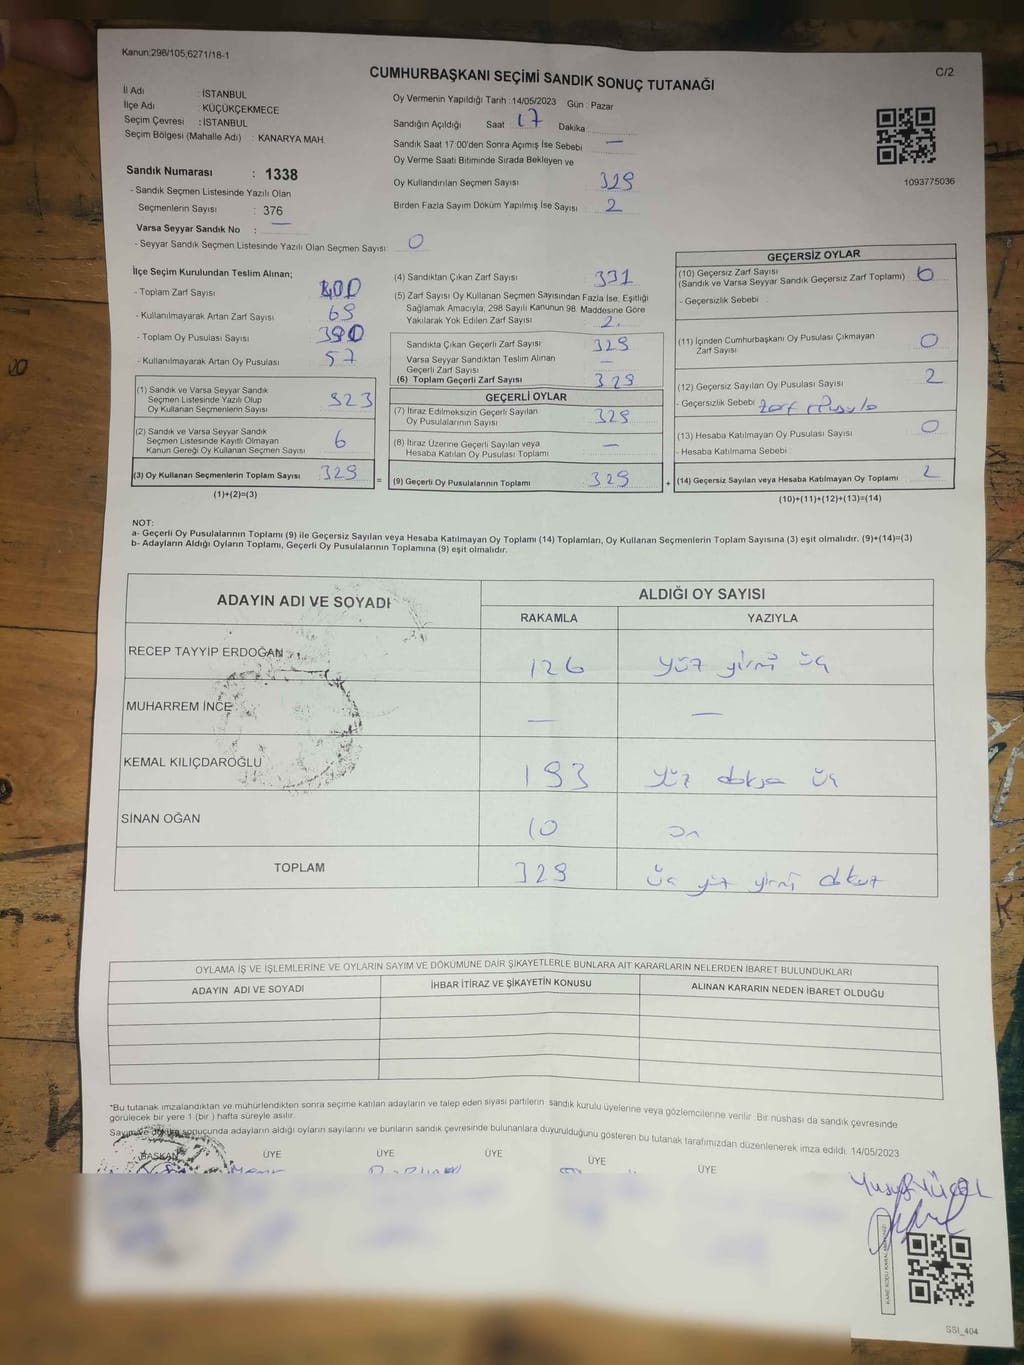 Kanun:298/105;6271/18-1
C/2
CUMHURBAŞKANI SEÇİMİ SANDIK SONUÇ TUTANAĞI
İl Adı : İSTANBUL
İlçe Adı : KÜÇÜKÇEKMECE
Seçim Çevresi : İSTANBUL
Seçim Bölgesi (Mahalle Adı) : KANARYA MAH.
Sandık Numarası : 1338
- Sandık Seçmen Listesinde Yazılı Olan
Seçmenlerin Sayısı : 376
Varsa Seyyar Sandık No : —
- Seyyar Sandık Seçmen Listesinde Yazılı Olan Seçmen Sayısı: 0
Oy Vermenin Yapıldığı Tarih :14/05/2023 Gün : Pazar
Sandığın Açıldığı Saat 17 Dakika :
Sandık Saat 17:00'den Sonra Açımış İse Sebebi —
Oy Verme Saati Bitiminde Sırada Bekleyen ve
Oy Kullandırılan Seçmen Sayısı 329
Birden Fazla Sayım Döküm Yapılmış İse Sayısı 2
1093775036
İlçe Seçim Kurulundan Teslim Alınan;
- Toplam Zarf Sayısı 400
- Kullanılmayarak Artan Zarf Sayısı 69
- Toplam Oy Pusulası Sayısı
- Kullanılmayarak Artan Oy Pusulası 57
(1) Sandık ve Varsa Seyyar Sandık
Seçmen Listesinde Yazılı Olup
Oy Kullanan Seçmenlerin Sayısı 323
(2) Sandık ve Varsa Seyyar Sandık
Seçmen Listesinde Kayıtlı Olmayan
Kanun Gereği Oy Kullanan Seçmen Sayısı 6
(3) Oy Kullanan Seçmenlerin Toplam Sayısı 329 =
(1)+(2)=(3)
(4) Sandıktan Çıkan Zarf Sayısı 331
(5) Zarf Sayısı Oy Kullanan Seçmen Sayısından Fazla İse, Eşitliği
Sağlamak Amacıyla, 298 Sayılı Kanunun 98. Maddesine Göre
Yakılarak Yok Edilen Zarf Sayısı 2
Sandıkta Çıkan Geçerli Zarf Sayısı 329
Varsa Seyyar Sandıktan Teslim Alınan
Geçerli Zarf Sayısı —
(6) Toplam Geçerli Zarf Sayısı 329
GEÇERLİ OYLAR
(7) İtiraz Edilmeksizin Geçerli Sayılan
Oy Pusulalarının Sayısı 329
(8) İtiraz Üzerine Geçerli Sayılan veya
Hesaba Katılan Oy Pusulası Toplamı —
(9) Geçerli Oy Pusulalarının Toplamı 329 +
GEÇERSİZ OYLAR
(10) Geçersiz Zarf Sayısı
(Sandık ve Varsa Seyyar Sandık Geçersiz Zarf Toplamı) 0
- Geçersizlik Sebebi :
(11) İçinden Cumhurbaşkanı Oy Pusulası Çıkmayan
Zarf Sayısı 0
(12) Geçersiz Sayılan Oy Pusulası Sayısı 2
- Geçersizlik Sebebi : zarf
(13) Hesaba Katılmayan Oy Pusulası Sayısı 0
- Hesaba Katılmama Sebebi :
(14) Geçersiz Sayılan veya Hesaba Katılmayan Oy Toplamı 2
(10)+(11)+(12)+(13)=(14)
NOT:
a- Geçerli Oy Pusulalarının Toplamı (9) ile Geçersiz Sayılan veya Hesaba Katılmayan Oy Toplamı (14) Toplamları, Oy Kullanan Seçmenlerin Toplam Sayısına (3) eşit olmalıdır. (9)+(14)=(3)
b- Adayların Aldığı Oyların Toplamı, Geçerli Oy Pusulalarının Toplamına (9) eşit olmalıdır.
ADAYIN ADI VE SOYADI ALDIĞI OY SAYISI
RAKAMLA YAZIYLA
RECEP TAYYİP ERDOĞAN 126 yüz yirmi üç
MUHARREM İNCE — —
KEMAL KILIÇDAROĞLU 193 yüz doksa üç
SİNAN OĞAN 10 on
TOPLAM 329 üç yüz yirmi dokuz
OYLAMA İŞ VE İŞLEMLERİNE VE OYLARIN SAYIM VE DÖKÜMÜNE DAİR ŞİKAYETLERLE BUNLARA AİT KARARLARIN NELERDEN İBARET BULUNDUKLARI
ADAYIN ADI VE SOYADI İHBAR İTİRAZ VE ŞİKAYETİN KONUSU ALINAN KARARIN NEDEN İBARET OLDUĞU
*Bu tutanak imzalandıktan ve mühürlendikten sonra seçime katılan adayların ve talep eden siyasi partilerin sandık kurulu üyelerine veya gözlemcilerine verilir. Bir nüshası da sandık çevresinde
görülecek bir yere 1 (bir ) hafta süreyle asılır.
Sayım ve döküm sonuçunda adayların aldığı oyların sayılarını ve bunların sandık çevresinde bulunanlara duyurulduğunu gösteren bu tutanak tarafımızdan düzenlenerek imza edildi. 14/05/2023
BAŞKAN ÜYE ÜYE ÜYE ÜYE ÜYE
Yusuf YÜCEL
SSI_404